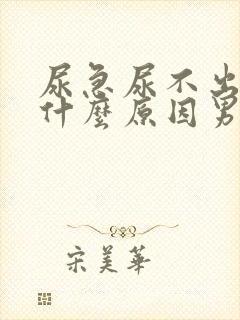 尿急尿不出
什麼原因男
宋美華